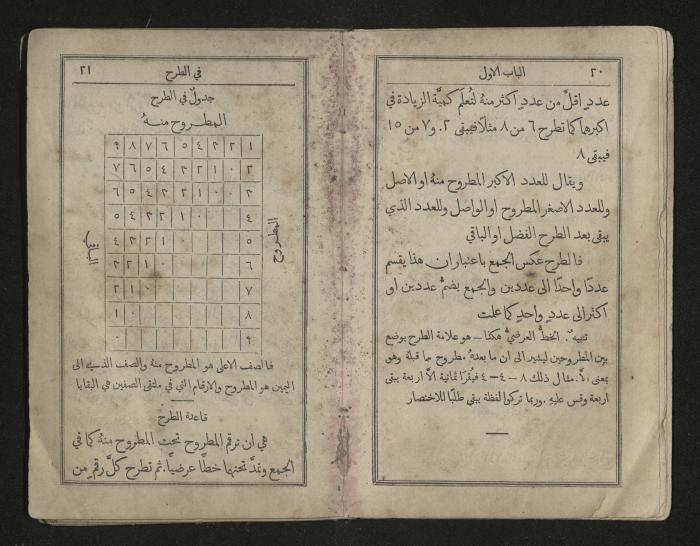 ٢٠ الباب الاول
عددٍ اقلَّ من عددٍ اكثر منهُ لتُعلَم كميَّة الزيادة في
اكبرهما كما تطرح ٦ من ٨ مثلاً فيبقى ٢. و٧ من ١٥
فيبقى ٨
ويقال للعدد الاكبر المطروح منهُ او الاصل
وللعدد الاصغر المطروح او الواصل وللعدد الذي
يبقى بعد الطرح الفضل او الباقي
فالطرح عكس الجمع باعتبار ان هذا يقسم
عددًا واحدًا الى عددين والجمع يضمُّ عددين او
اكثر الى عددٍ واحدٍ كما علمت
تنبيه. الخطُّ العرضيُّ هكذا — هو علامة الطرح يوضع
بين المطروحين ليشير الى ان ما بعدهُ مطروح مما قبلهُ وهو
بمعنى الَّا. مثال ذلك ٨ – ٤ – ٤ فيُقرَأ ثمانية الَّا اربعة يبقى
اربعة وقس عليهِ. وربما تركوا لفظة يبقى طلبًا للاختصار
في الطرح ٢١
جدولٌ في الطرح
المطروح منهُ
١ ٢ ٣ ٤ ٥ ٦ ٧ ٨ ٩
المطروح
الباقي
فالصف الاعلى هو المطروح منهُ والصف الذي الى
اليمين هو المطروح والارقام التي في ملتقى الصفين هي البقايا
قاعدة الطرح
هي ان ترقم المطروح تحت المطروح منهُ كما في
الجمع وتمدَّ تحتها خطًّا عرضيًّا. ثم تطرح كلَّ رقمٍ من